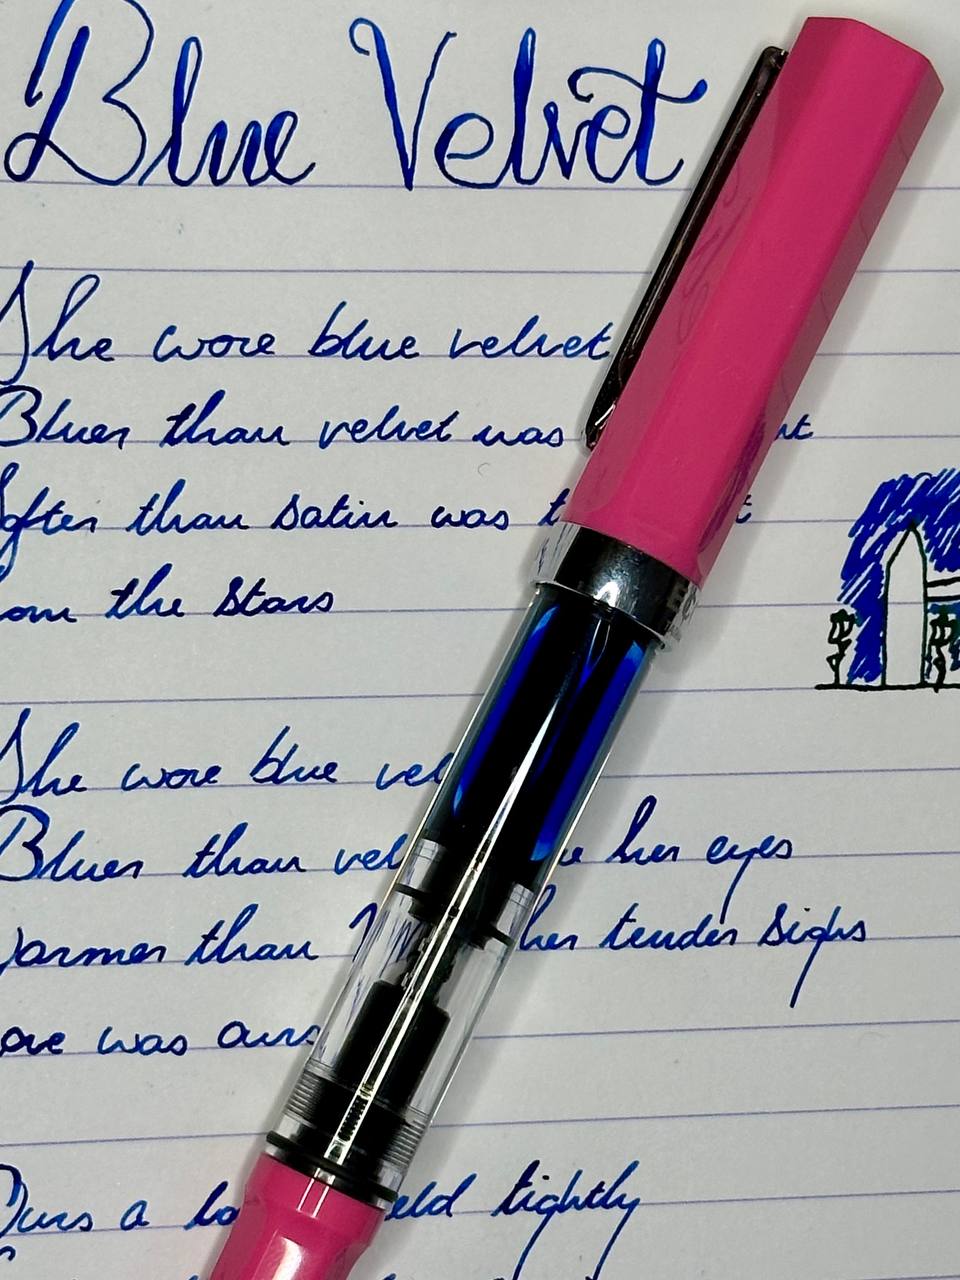 Blue Velvet
She wore blue velvet
Bluer than velvet was
Softer than satin was
the stars
She wore blue vel
Bluer than vel her eyes
Warmer than her tender sighs
ove was ours
Ours a eld tightly
EC